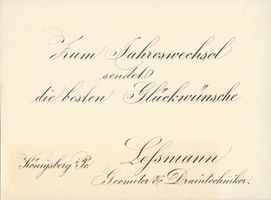 Zum Jahreswechsel
sendet
die besten Glückwünsche
Leßmann
Königsberg i/Pr.
Geometer & Draintechniker.